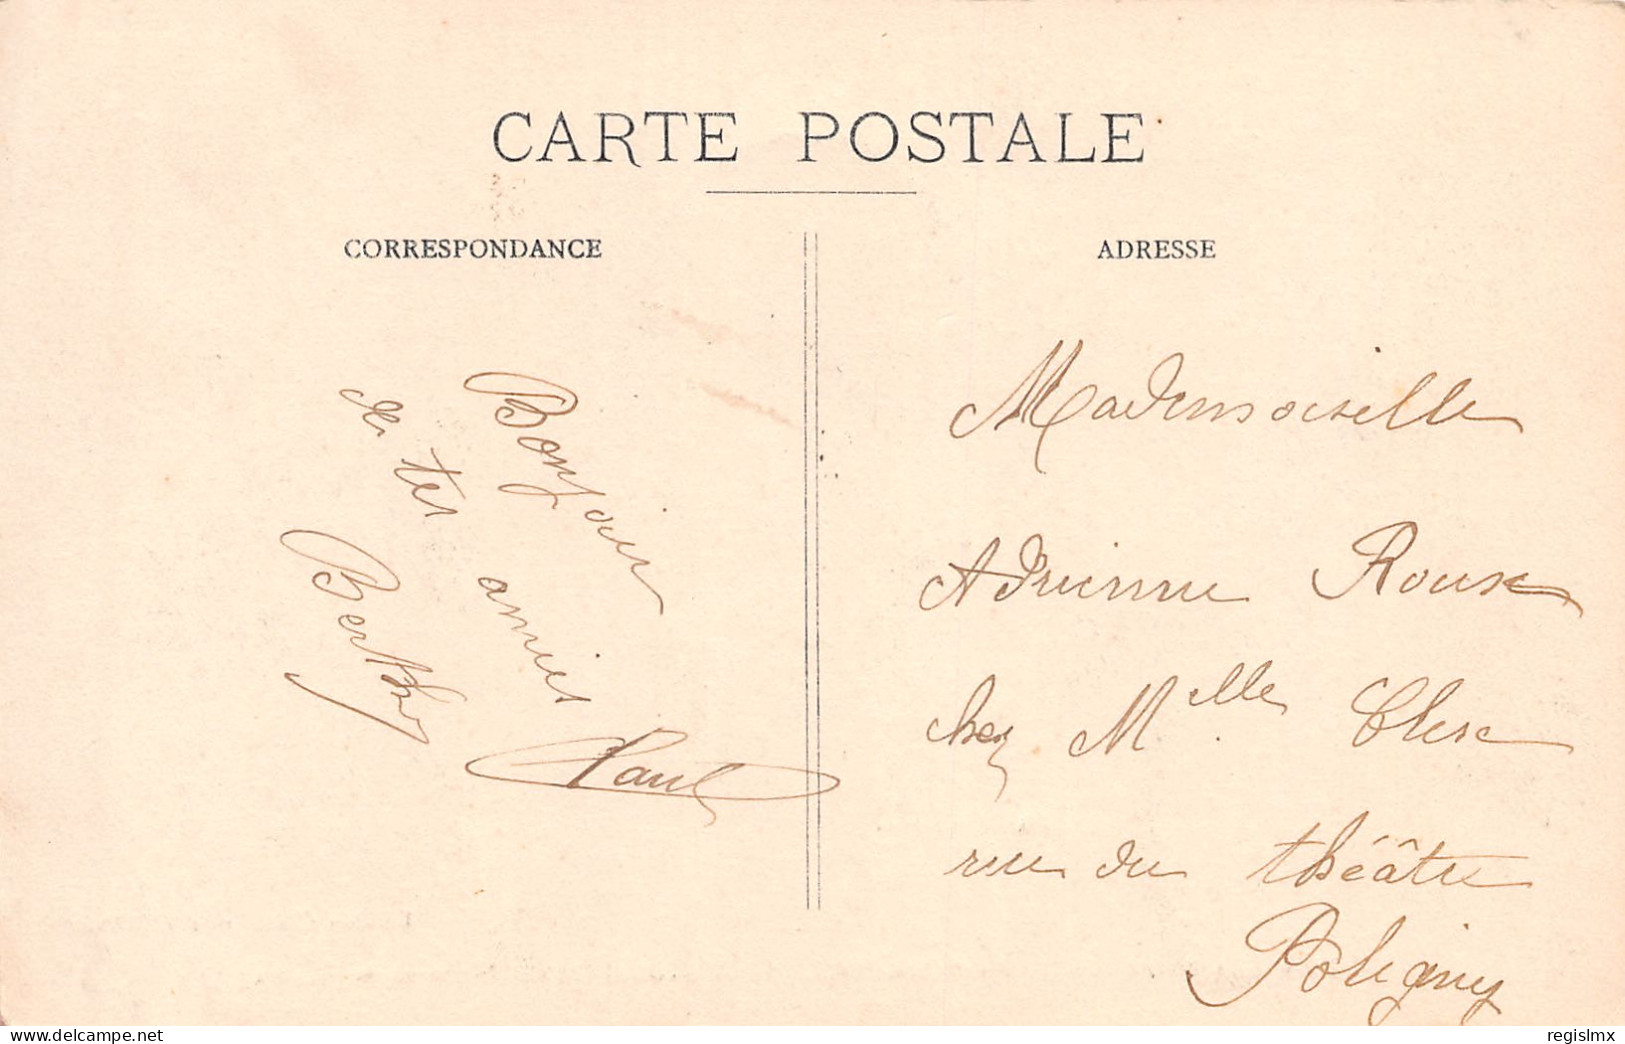 CARTE POSTALE
CORRESPONDANCE
Bonjour
de tes amies
Berthe
Paul
ADRESSE
Mademoiselle
Adrienne Roux
chez Mlle Clerc
rue du théâtre
Poligny
delcampe.net
regislmx